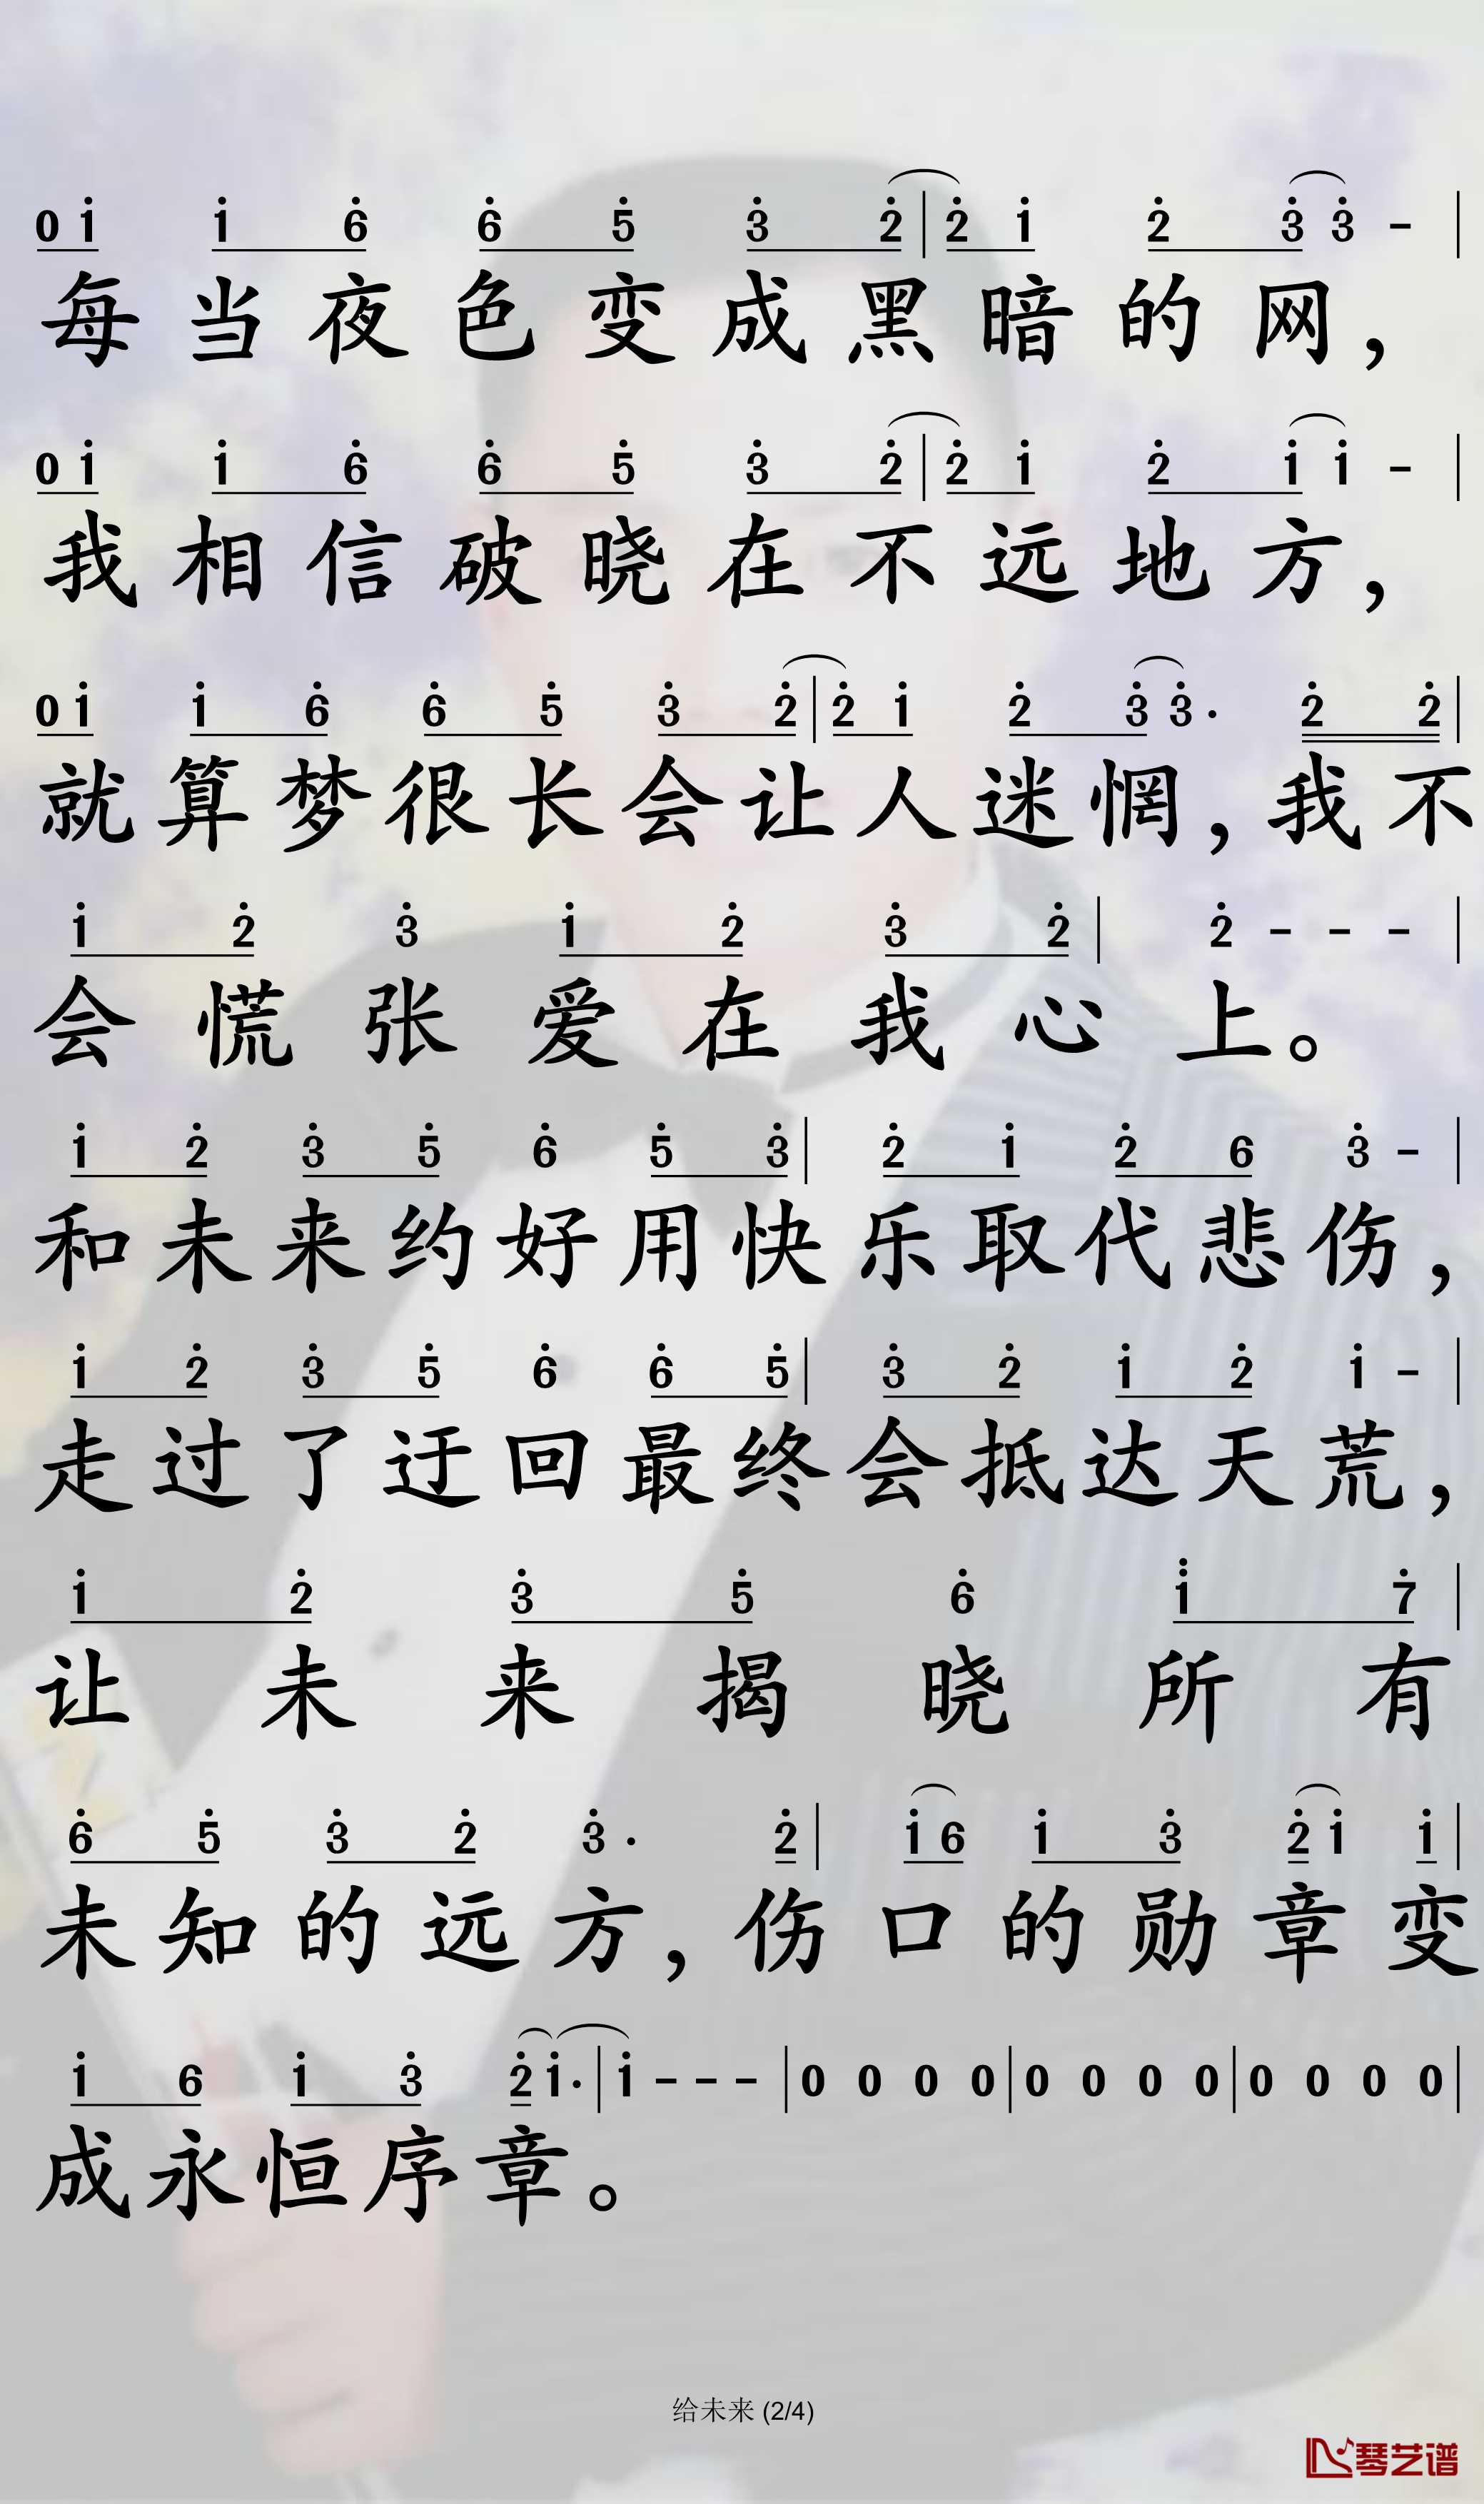 0 1 1 6 6 5 3 2 | 2 1 2 3 3 - |
每当夜色变成黑暗的网，
0 1 1 6 6 5 3 2 | 2 1 2 1 1 - |
我相信破晓在不远地方，
0 1 1 6 6 5 3 2 | 2 1 2 3 3 · 2 2 |
就算梦很长会让人迷惘，我不
1 2 3 1 2 3 2 | 2 - - - |
会慌张爱在我心上。
1 2 3 5 6 5 3 | 2 1 2 6 3 - |
和未来约好用快乐取代悲伤，
1 2 3 5 6 6 5 | 3 2 1 2 1 - |
走过了迂回最终会抵达天荒，
1 2 3 5 6 1 7 |
让未来揭晓所有
6 5 3 2 3 · 2 | 1 6 1 3 2 1 1 |
未知的远方，伤口的勋章变
1 6 1 3 2 1 · | 1 - - - | 0 0 0 0 | 0 0 0 0 | 0 0 0 0 |
成永恒序章。
给未来 (2/4)
琴艺谱